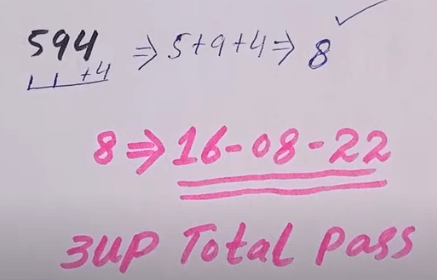 594 ⇒ 5+9+4 ⇒ 8 ✓
+4
8 ⇒ 16-08-22
3UP Total Pass